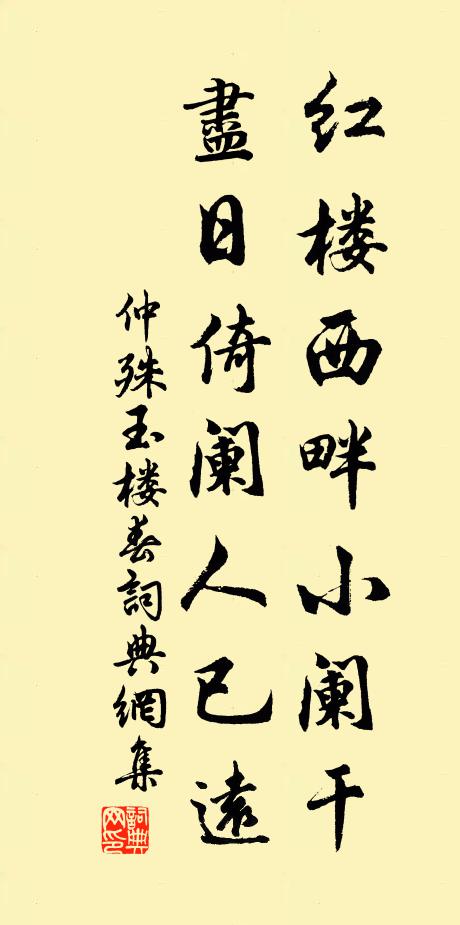 红楼西畔小阑干
盡日倚阑人已遠
仲殊玉楼春詞典網集
詞典
网印